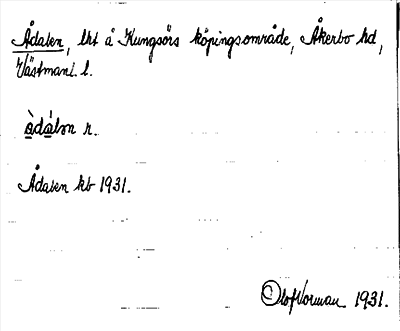 Ådalen, lht å Kungsörs köpingsområde, Åkerbo hd,
Västmanl. l.
ὰdálən n.
Ådalen kb 1931.
Olof Norman 1931.